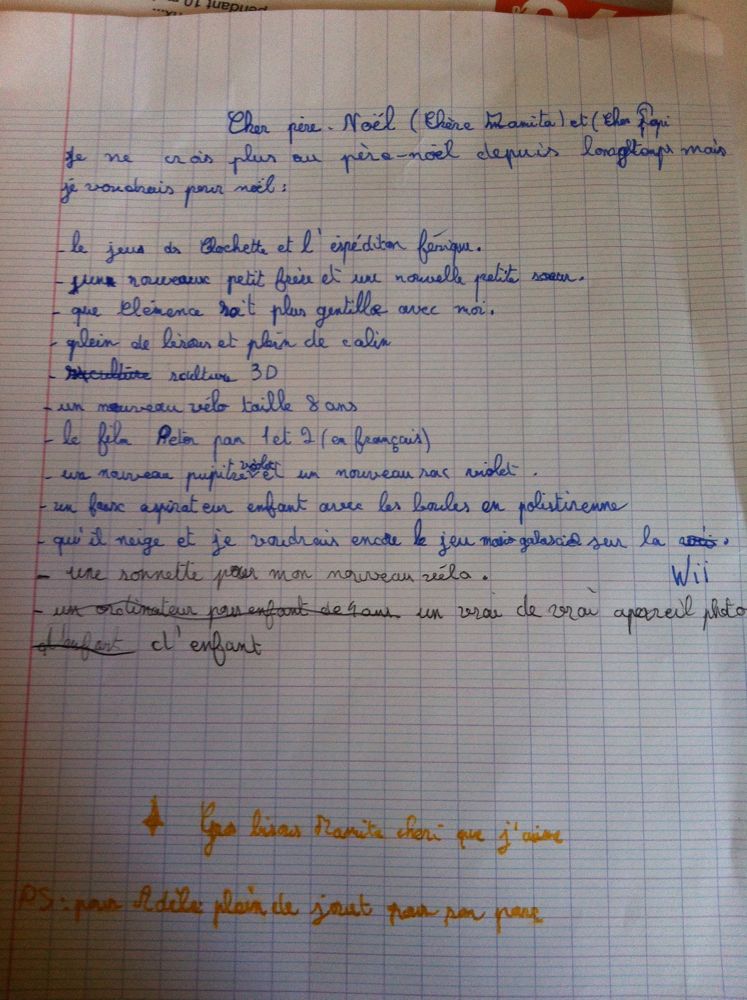 pendant 10
Cher père-Noël (Chère Mamita) et (Cher Papi
Je ne crois plus au père-noël depuis longtemps mais
je voudrais pour noël :
- le jeus de Clochette et l'espéditon férique.
- nouveaux petit frère et une nouvelle petite soeur.
- que Clémence soit plus gentille avec moi.
- plein de bisous et plein de calin
- sculture 3D
- un nouveau vélo taille 8 ans
- le film Peter pan 1 et 2 (en français)
- un nouveau pupitre violet et un nouveau sac violet.
- un faux aspirateur enfant avec les boules en polistirenne
- qu'il neige et je voudrais encore le jeu mario galascie sur la
Wii
- une sonnette pour mon nouveau véélo.
- un ordinateur pour enfant de 9 ans un vrai de vrai apareil photo
d'enfant d'enfant
Gros bisous Mamita chéri que j'aime
PS : pour Adèle plein de jouet pour son parc